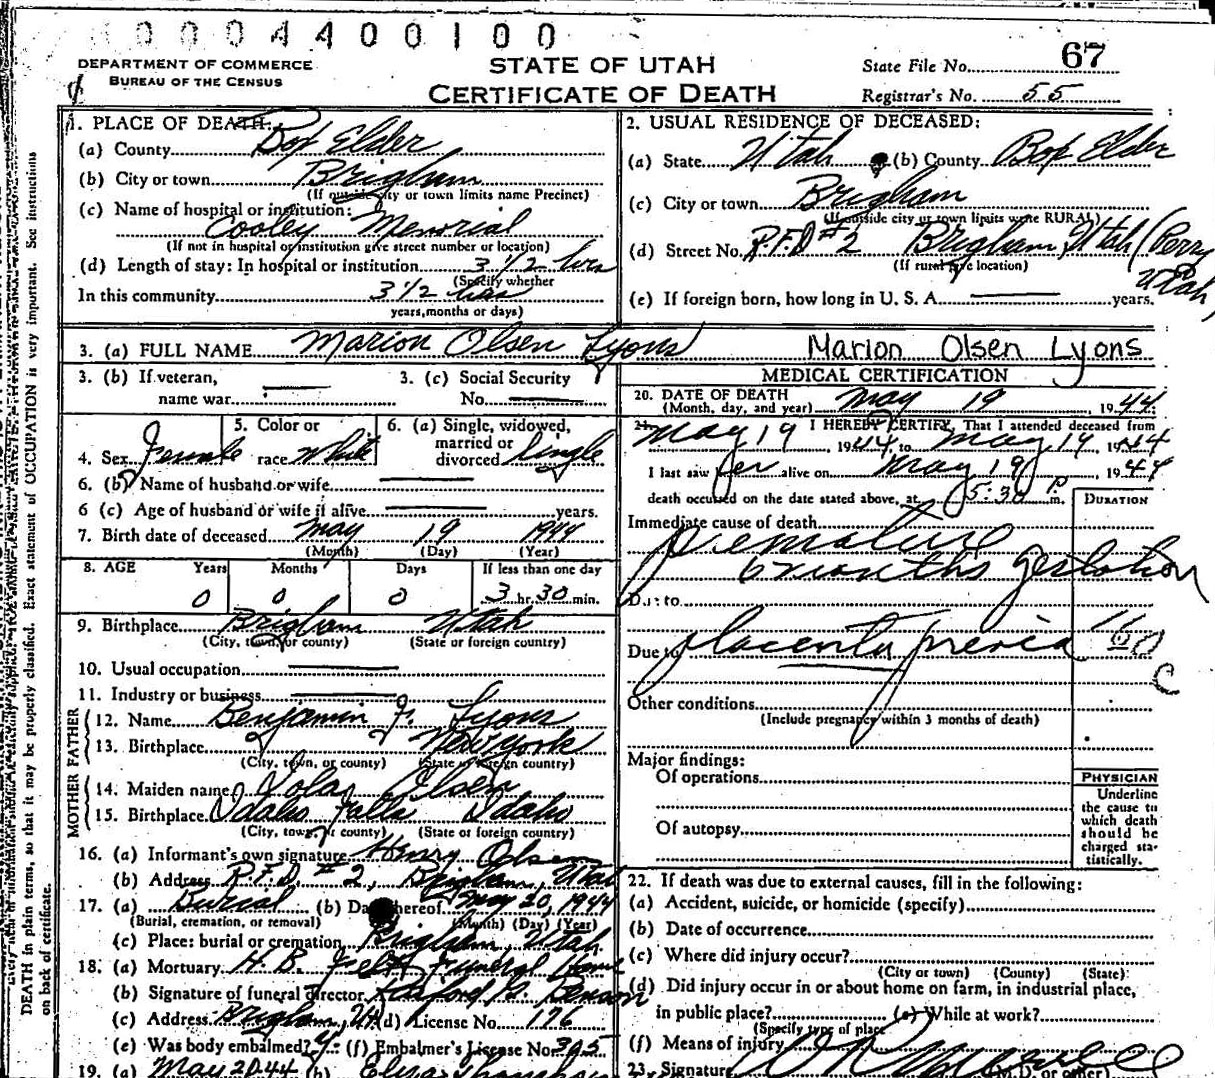 0004400100
DEPARTMENT OF COMMERCE
BUREAU OF THE CENSUS
STATE OF UTAH
CERTIFICATE OF DEATH
State File No. 67
Registrar's No. 55
1. PLACE OF DEATH:
(a) County Box Elder
(b) City or town Brigham
(If outside city or town limits name Precinct)
(c) Name of hospital or institution:
Cooley Memorial
(If not in hospital or institution give street number or location)
(d) Length of stay: In hospital or institution 3 1/2 hrs
(Specify whether
In this community 3 1/2 hrs
years, months or days)
2. USUAL RESIDENCE OF DECEASED:
(a) State Utah (b) County Box Elder
(c) City or town Brigham
(If outside city or town limits write RURAL)
(d) Street No. R.F.D #2 Brigham, Utah (Perry
Utah)
(If rural give location)
(e) If foreign born, how long in U. S. A. years.
3. (a) FULL NAME Marion Olsen Lyons Marion Olsen Lyons
3. (b) If veteran,
name war
3. (c) Social Security
No.
4. Sex Female
5. Color or
race White
6. (a) Single, widowed,
married or
divorced Single
6. (b) Name of husband or wife
6 (c) Age of husband or wife if alive years.
7. Birth date of deceased May 19 1944
(Month) (Day) (Year)
8. AGE Years Months Days If less than one day
0 0 0 3 hr. 30 min.
9. Birthplace Brigham Utah
(City, town, or county) (State or foreign country)
10. Usual occupation
11. Industry or business
FATHER
12. Name Benjamin J. Lyons
13. Birthplace New York
(City, town, or county) (State or foreign country)
MOTHER
14. Maiden name Iola Olsen
15. Birthplace Idaho Falls Idaho
(City, town, or county) (State or foreign country)
16. (a) Informant's own signature Henry Olsen
(b) Address R.F.D. #2, Brigham, Utah
17. (a) Burial (b) Date thereof May 20, 1944
(Burial, cremation, or removal) (Month) (Day) (Year)
(c) Place: burial or cremation Brigham, Utah
18. (a) Mortuary H. B. Felt Funeral Home
(b) Signature of funeral director Benson
(c) Address Brigham, Ut (d) License No. 176
(e) Was body embalmed? (f) Embalmer's License No. 305
19. (a) May 20 44 (b)
MEDICAL CERTIFICATION
20. DATE OF DEATH
(Month, day, and year) May 19, 1944
21. I HEREBY CERTIFY, That I attended deceased from
May 19 1944, to May 19, 1944
I last saw her alive on May 19, 1944
death occurred on the date stated above, at 5:30 P m.
DURATION
Immediate cause of death
premature
6 months gestation
Due to
Due to placenta previa 160
C
Other conditions
(Include pregnancy within 3 months of death)
Major findings:
Of operations
Of autopsy
PHYSICIAN
Underline
the cause to
which death
should be
charged sta-
tistically.
22. If death was due to external causes, fill in the following:
(a) Accident, suicide, or homicide (specify)
(b) Date of occurrence
(c) Where did injury occur?
(City or town) (County) (State)
(d) Did injury occur in or about home on farm, in industrial place,
in public place? (e) While at work?
(Specify type of place
(f) Means of injury
23. Signature (M.D. or other)
DEATH in plain terms, so that it may be properly classified. Exact statement of OCCUPATION is very important. See instructions
on back of certificate.